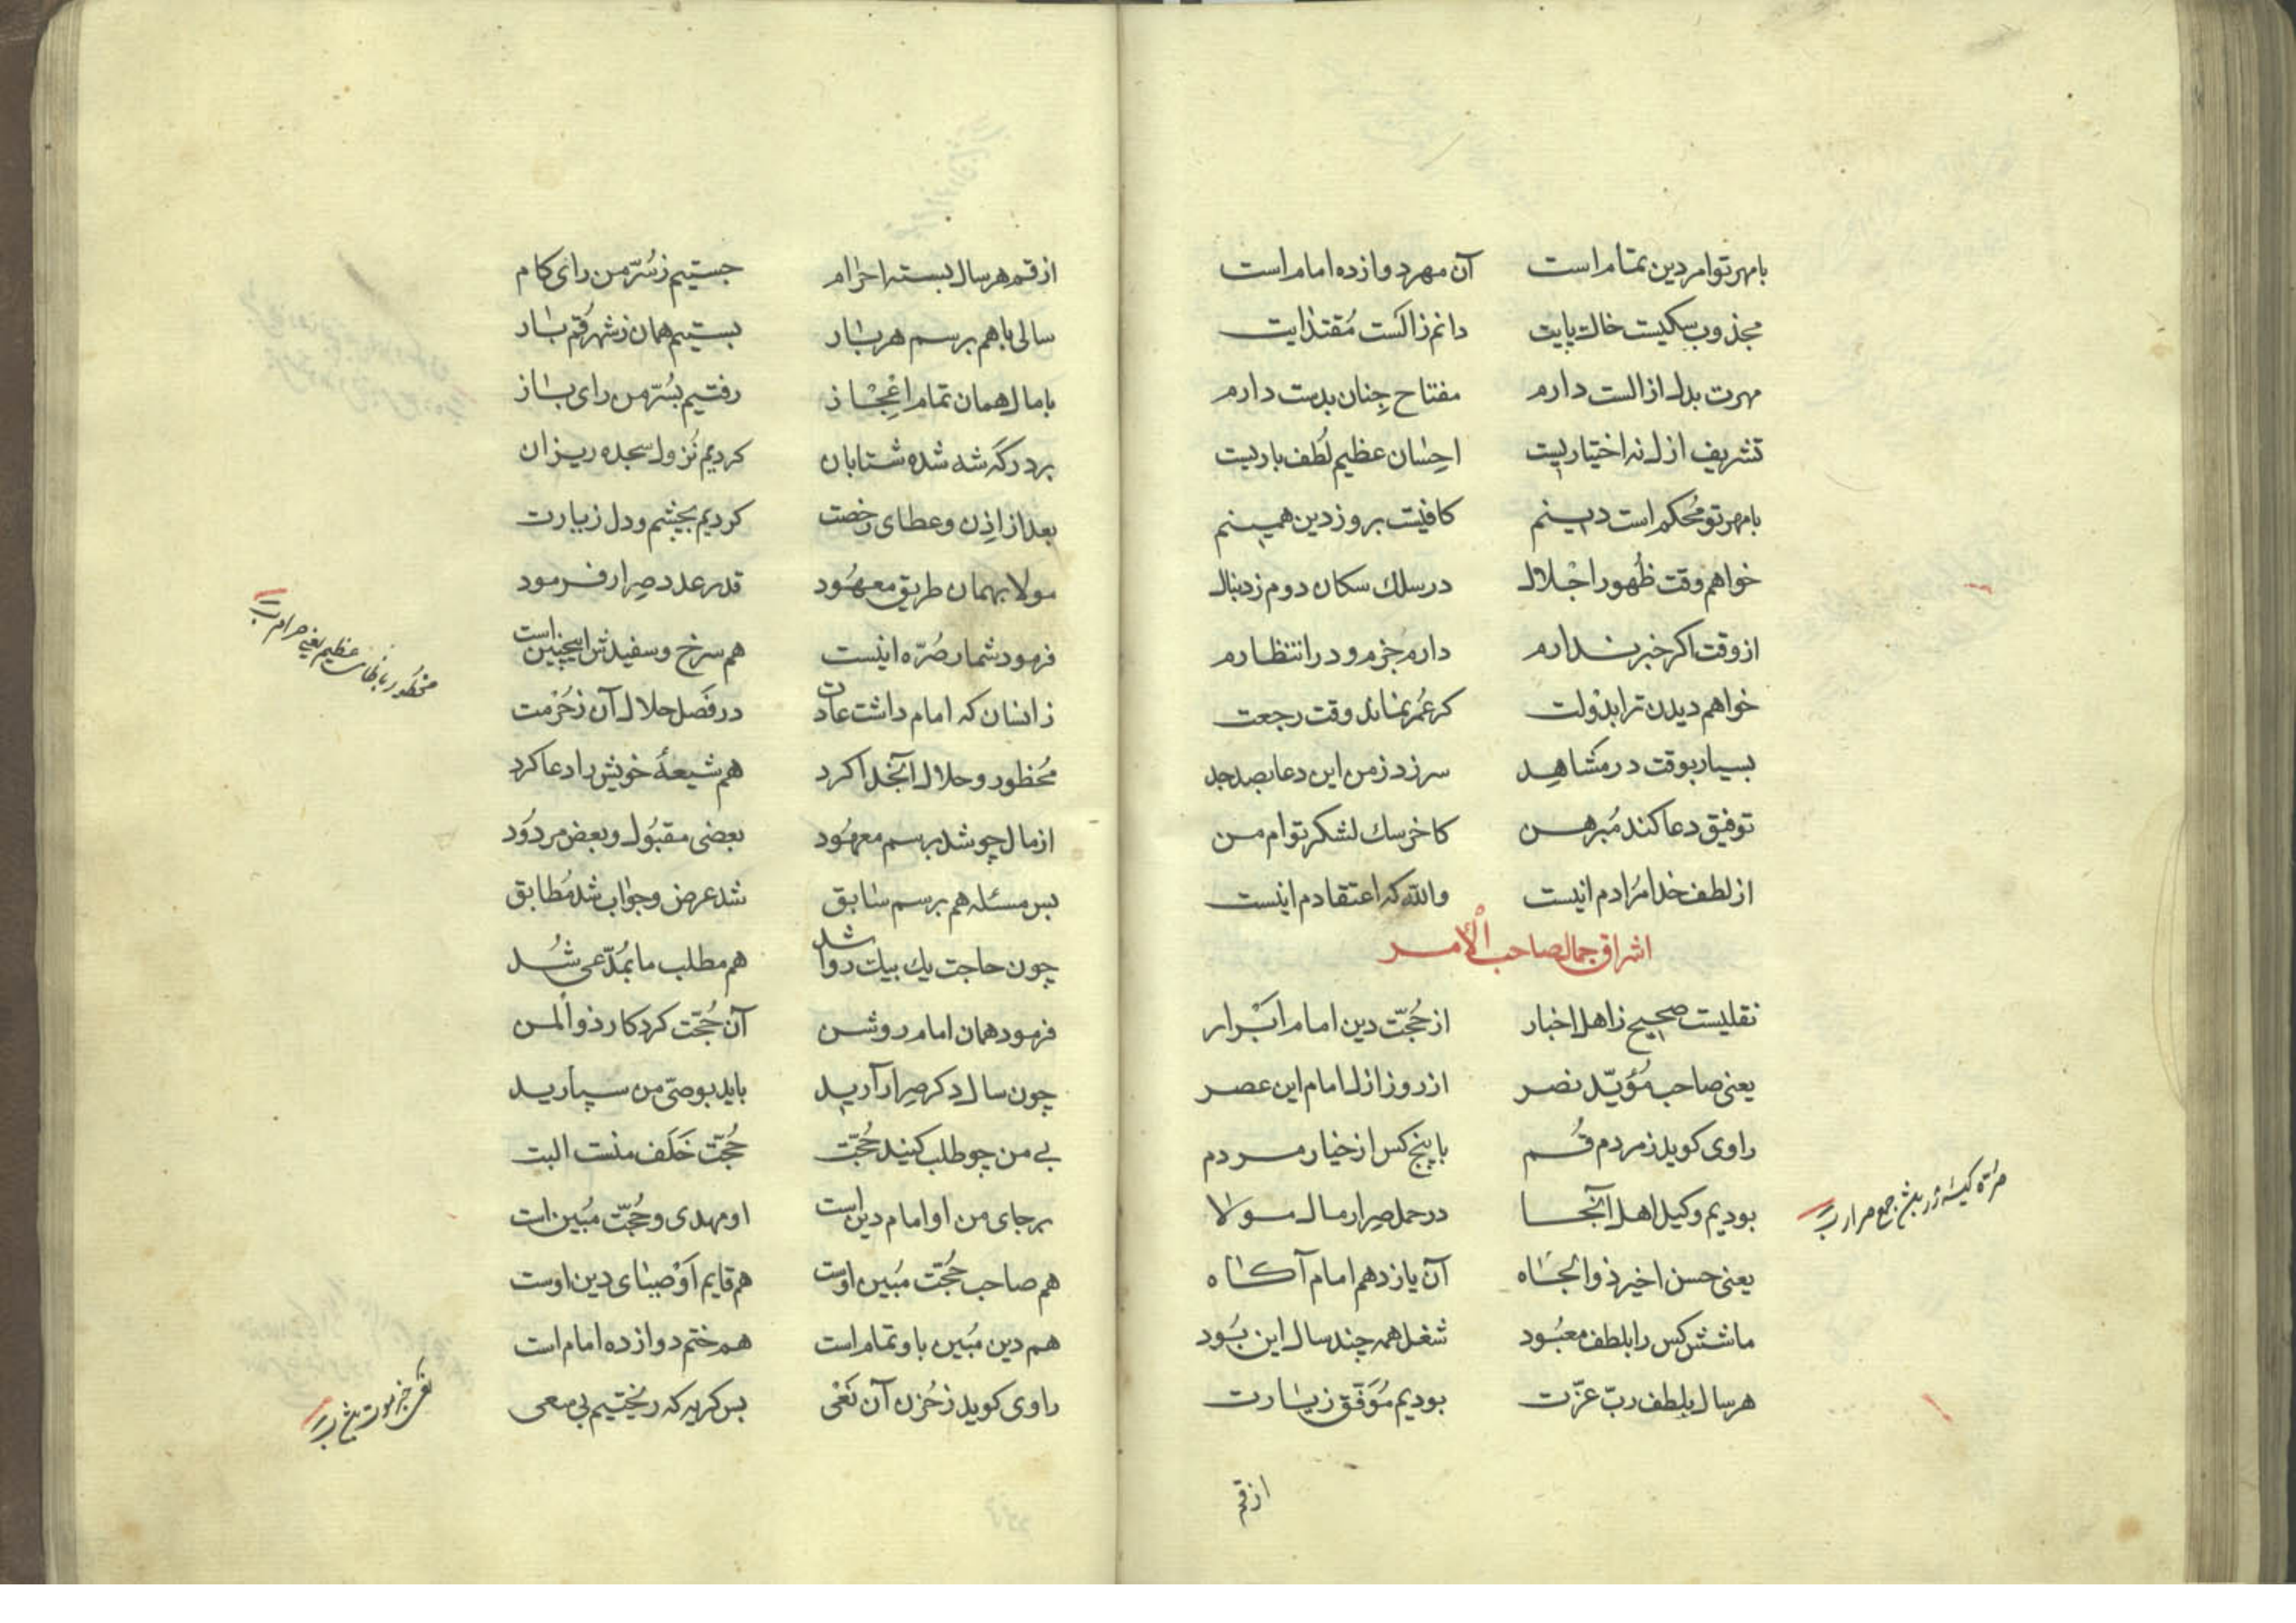 بامهر تو امر دین تمام است آن مهر دوازده امام است
مجذوب سکیست خاك پایت دانم ز الست مقتدایت
مهرت بدل از الست دارم مفتاح جِنان بدست دارم
تشریف ازل نه اختیاریست احسان عظیم لُطف باریست
بامهر تو مُحکم است دینم کافیست بروز دین همینم
خواهم وقت ظُهور اجْلال در سلك سکان دوم ز دنبال
از وقت اکر خبر ندارم دارم جَزم و در انتظارم
خواهم دیدن ترا بدَولت کر عُمر نماند وقت رجعت
بسیار بوقت در مَشاهِد سر زد ز من این دعا بصد جد
توفیق دعا کند مُبرهن کاخر سك لشکر توام من
از لطف خدا مُرادم اینست والله که اعتقادم اینست
اشراق جمال صاحب الأمر
نقلیست صحیح ز اهل اخبار از حُجّت دین امام ابْرار
یعنی صاحب مُؤیّد نصر از روز ازل امام این عصر
راوی کوید ز مردم قُم با پنج کس از خیار مردم
بودیم وکیل اهل آنجا در حمل صِرار مال مولا
صرّة کیسهٔ زر جمع صرار
یعنی حسن اخیر ذوالجاه آن یازدهم امام آکاه
ما شش کس را بلطف معبُود شغل همه چند سال این بُود
هر سال بلطف ربّ عزّت بودیم مُوَفّق زیارت
از قم
از قم هر سال بسته احرام جستیم ز سُرّ من رای کام
سالی با هم برسم هر بار بستیم همان ز شهر قُم بار
با مال همان تمام اعْجاز رفتیم بسُرّ من رای باز
بر درکه شه شده شتابان کردیم نُزول سجده ریزان
بعد از اذِن و عطای رخصت کردیم بچشم و دل زیارت
مولا بهمان طریق معهُود قدر عدد صِرار فرمود
فرمود شمار صُرّه اینست هم سرخ و سفیدش اینچنین است
محظور عظیم یعنی حرام
زانسان که امام داشت عادت در فَصل حلال آن ز حُرْمت
مُحظور و حلال آنجُدا کرد هم شیعهٔ خویش را دعا کرد
از مال چو شد برسم معهُود بعضی مقبُول و بعض مردُود
بس مسئله هم برسم سابق شد عرض و جواب شد مُطابق
چون حاجت یك بیك روا شد هم مطلب ما بمُدّعی شُد
فرمود همان امام روشن آن حُجّت کردکار ذوالمن
چون سال دکر صِرار آرید باید بوصیّ من سپارید
بی من چو طلب کنید حُجّت حُجّت خَلَف منست البت
بر جای من او امام دین است او مهدی و حُجّت مُبین است
هم صاحب حُجّت مُبین اوست هم قایم اوْصیای دین اوست
هم دین مُبین باو تمام است هم ختم دوازده امام است
راوی کوید ز حُزن آن نَعْی بس کریه که ریختیم بی سعی
نعی خبر موت